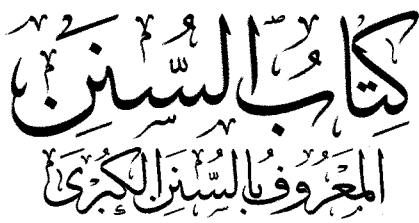 كِتَابُ السُّنَنِ
المَعْرُوفُ بِالسُّنَنِ الكُبْرَىٰ